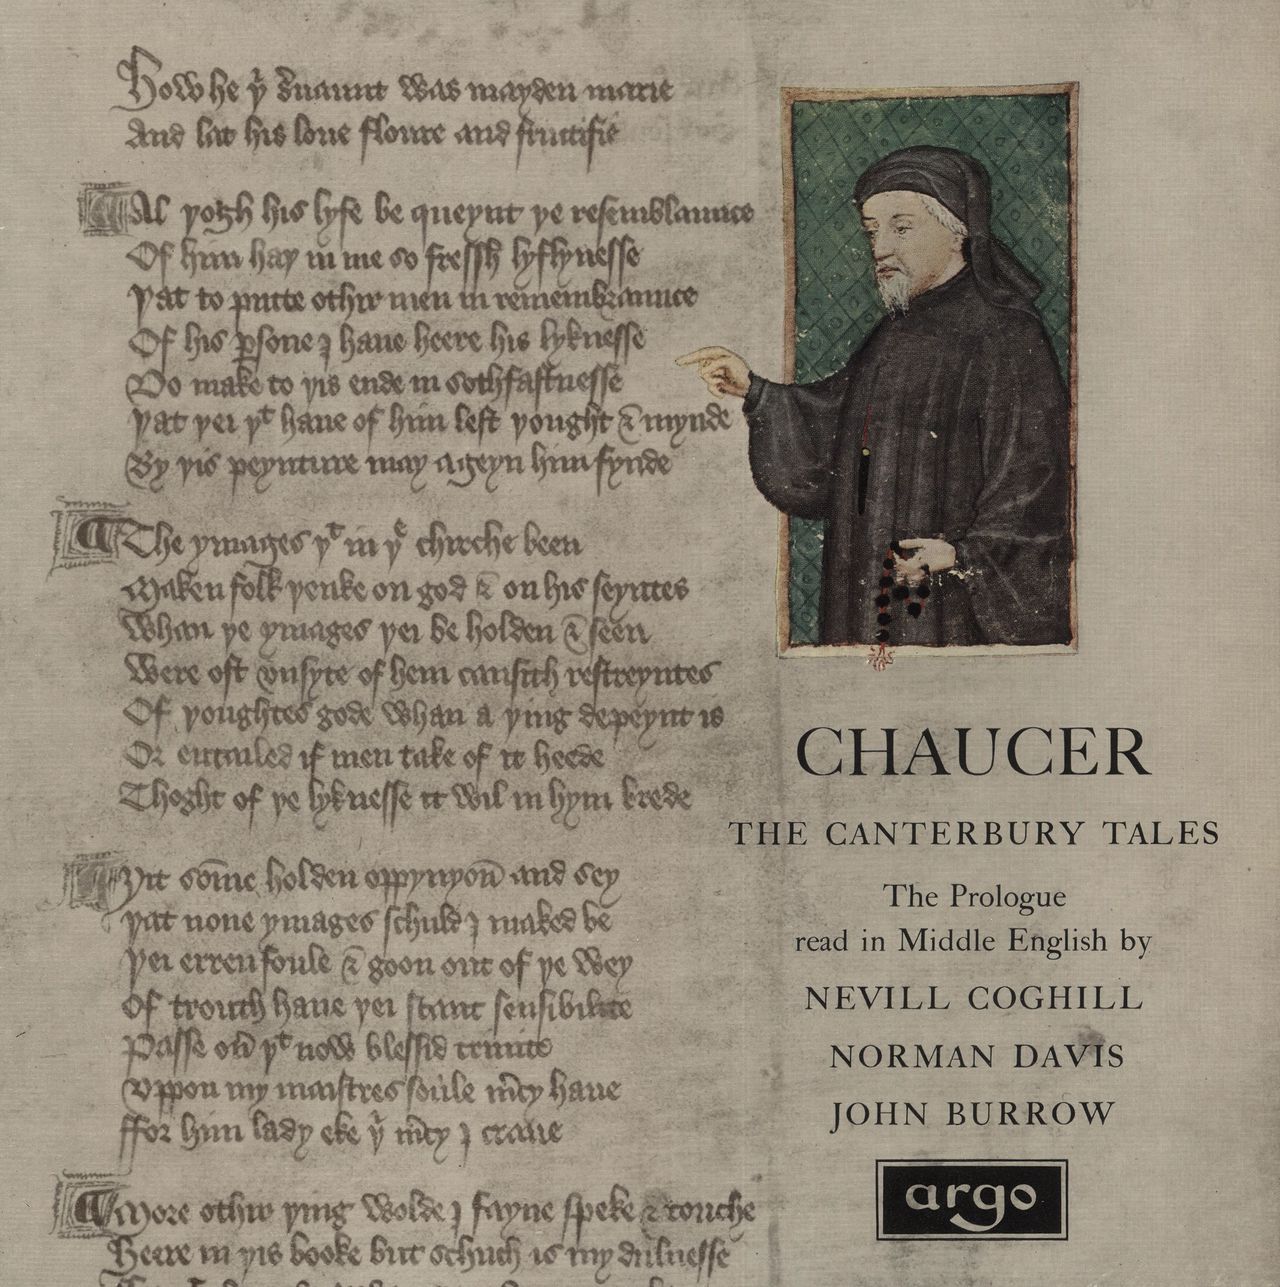 How he yͬ ẜuaunt was mayden marie
And lat his loue floure and fructifie
Al þogh his lyfe be queynt þe resemblaunce
Of him haþ in me so fressh lyflynesse
Þat to putte othir men in remembraunce
Of his ꝑsone I haue heere his lyknesse
Do make to þis ende in sothfastnesse
Þat þei þͭ haue of him left þought & mynde
By þis peynture may ageyn him fynde
The ymages þͭ in þͤ chirche been
Maken folk þenke on god & on his seyntes
Whan þe ymages þei be holden & seen
Were oft vnsyte of hem causith restreyntes
Of þoughtes gode whan a þing depeynt is
Or entailed if men take of it heede
Thoght of þe lyknesse it wil in hym brede
Yit som̄e holden oppynyon̄ and sey
Þat none ymages schuld I maked be
Þei erren foule & goon out of þe wey
Of trouth haue þei scant sensibilite
Passe ou̓ þͭ now blessid trinite
Vppon my maistres soule m̓cy haue
ffor him lady eke þͥ m̓cy I craue
More othir þing wolde I fayne speke & touche
Heere in þis booke but schuch is my dulnesse
CHAUCER
THE CANTERBURY TALES
The Prologue
read in Middle English by
NEVILL COGHILL
NORMAN DAVIS
JOHN BURROW
argo